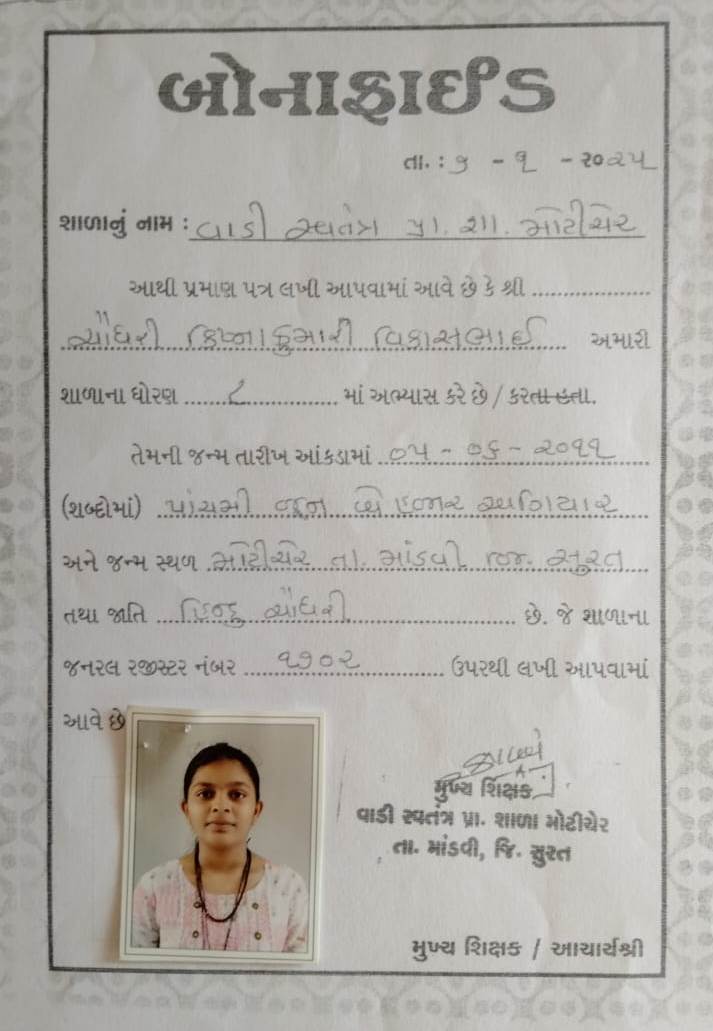 બોનાફાઈડ
તા. : ૭ - ૧ - ૨૦૨૫
શાળાનું નામ : વાડી સ્વતંત્ર પ્રા. શા. મોટીચેર
આથી પ્રમાણ પત્ર લખી આપવામાં આવે છે કે શ્રી ....................
ચૌધરી ક્રિષ્નાકુમારી વિકાસભાઈ અમારી
શાળાના ધોરણ ....... ૮ ............... માં અભ્યાસ કરે છે / કરતા હતા.
તેમની જન્મ તારીખ આંકડામાં ૦૫ - ૦૬ - ૨૦૧૧
(શબ્દોમાં) પાંચમી જૂન બે હજાર અગિયાર
અને જન્મ સ્થળ મોટીચેર તા. માંડવી જિ. સુરત
તથા જાતિ હિન્દુ ચૌધરી છે. જે શાળાના
જનરલ રજીસ્ટર નંબર ૧૭૦૨ ઉપરથી લખી આપવામાં
આવે છે
મુખ્ય શિક્ષક
વાડી સ્વતંત્ર પ્રા. શાળા મોટીચેર
તા. માંડવી, જિ. સુરત
મુખ્ય શિક્ષક / આચાર્યશ્રી